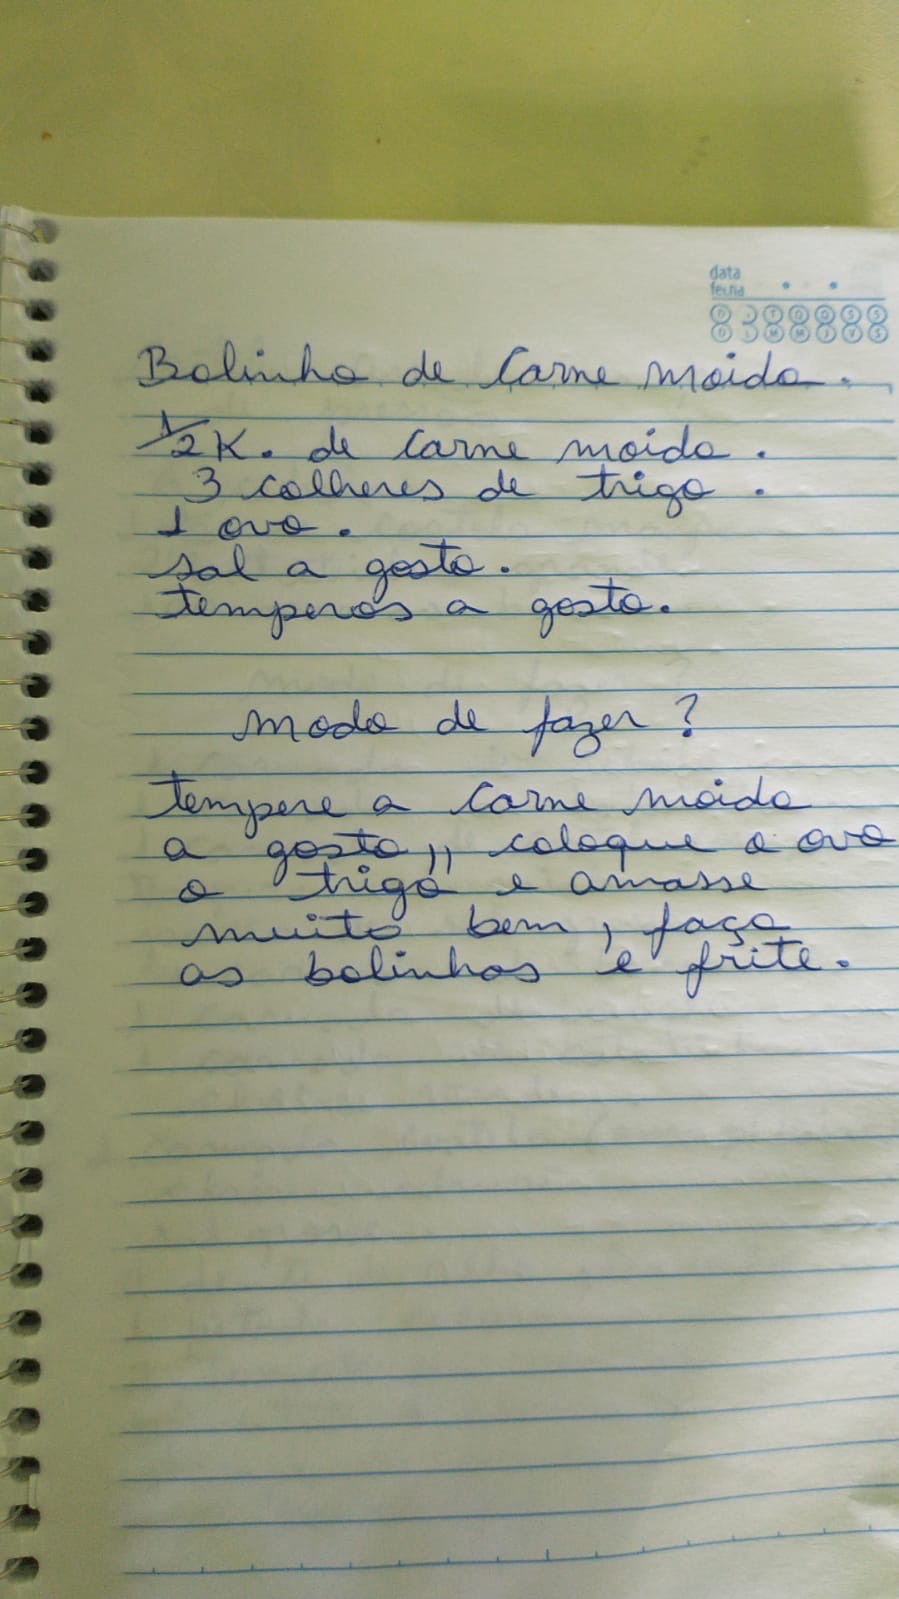 data
fecha
D S T Q Q S S
D L M M J V S
Bolinho de Carne moida.
1/2 K. de carne moida.
3 colheres de trigo.
1 ovo.
sal a gosto.
temperos a gosto.
modo de fazer?
tempere a carne moida
a gosto,, coloque o ovo
o trigo e amasse
muito bem, faça
os bolinhos e frite.